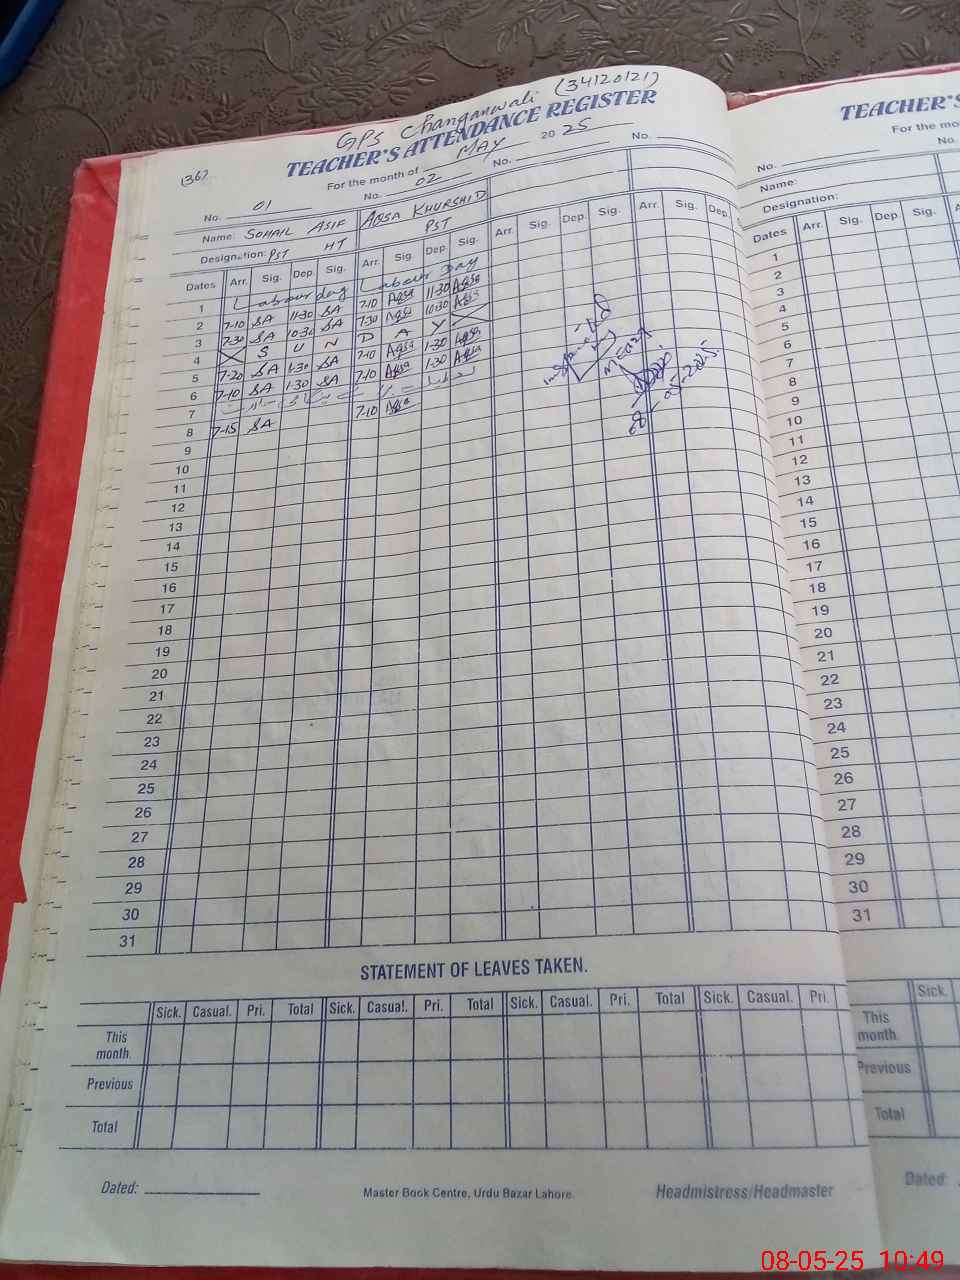 GPS Changanwali (34120121)
TEACHER'S ATTENDANCE REGISTER
(36)
For the month of MAY 2025
No. 01 No. 02 No. No.
Name: SOHAIL ASIF AQSA KHURSHID
Designation: PST HT PST
Dates Arr. Sig. Dep. Sig. Arr. Sig. Dep. Sig. Arr. Sig. Dep. Sig. Arr. Sig. Dep.
1 Labour day Labour Day
2 7-10 SA 11-30 SA 7-10 Aqsa 11-30 Aqsa
3 7-30 SA 10-30 SA 7-30 Aqsa 10-30 Aqsa
4 S U N D A Y
5 7-20 SA 1-30 SA 7-10 Aqsa 1-30 Aqsa
6 7-10 SA 1-30 SA 7-10 Aqsa 1-30 Aqsa
7
8 7-15 SA 7-10 Aqsa
8-05-2025
9
10
11
12
13
14
15
16
17
18
19
20
21
22
23
24
25
26
27
28
29
30
31
STATEMENT OF LEAVES TAKEN.
Sick. Casual. Pri. Total Sick. Casual. Pri. Total Sick. Casual. Pri. Total Sick. Casual. Pri.
This month.
Previous
Total
Dated: Master Book Centre, Urdu Bazar Lahore. Headmistress/Headmaster
TEACHER'S
For the mo
No. No.
Name:
Designation:
Dates Arr. Sig. Dep. Sig. Arr.
1
2
3
4
5
6
7
8
9
10
11
12
13
14
15
16
17
18
19
20
21
22
23
24
25
26
27
28
29
30
31
Sick.
This month.
Previous
Total
Dated:
08-05-25 10:49